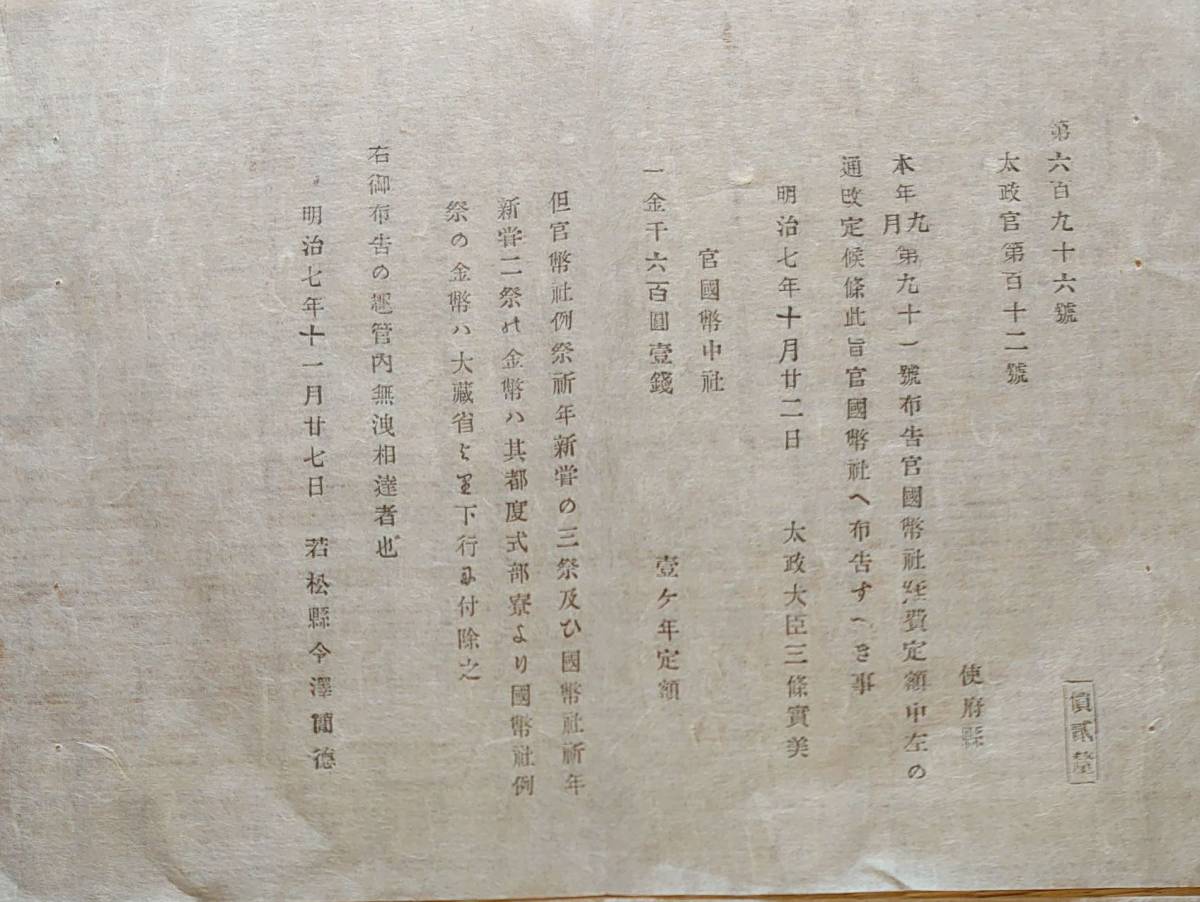 第六百九十六號
價貳釐
太政官第百十二號
使府縣
本年九月第九十一號布告官國幣社經費定額中左の
通改定候條此旨官國幣社へ布告すへき事
明治七年十月廿二日 太政大臣三條實美
官國幣中社
一金千六百圓壹錢 壹ケ年定額
但官幣社例祭祈年新甞の三祭及ひ國幣社祈年
新甞二祭の金幣ハ其都度式部寮より國幣社例
祭の金幣ハ大藏省より下行に付除之
右御布告の趣管內無洩相達者也
明治七年十一月廿七日 若松縣令澤簡德